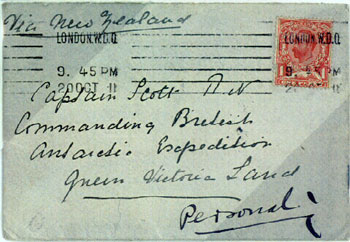 Via New Zealand
LONDON.W.D.O. LONDON.W.D.O
9. 45 PM 9. 45 PM
20 OCT 11 20 OCT 11
Captain Scott R.N
Commanding British
Antarctic Expedition
Queen Victoria Land
Personal